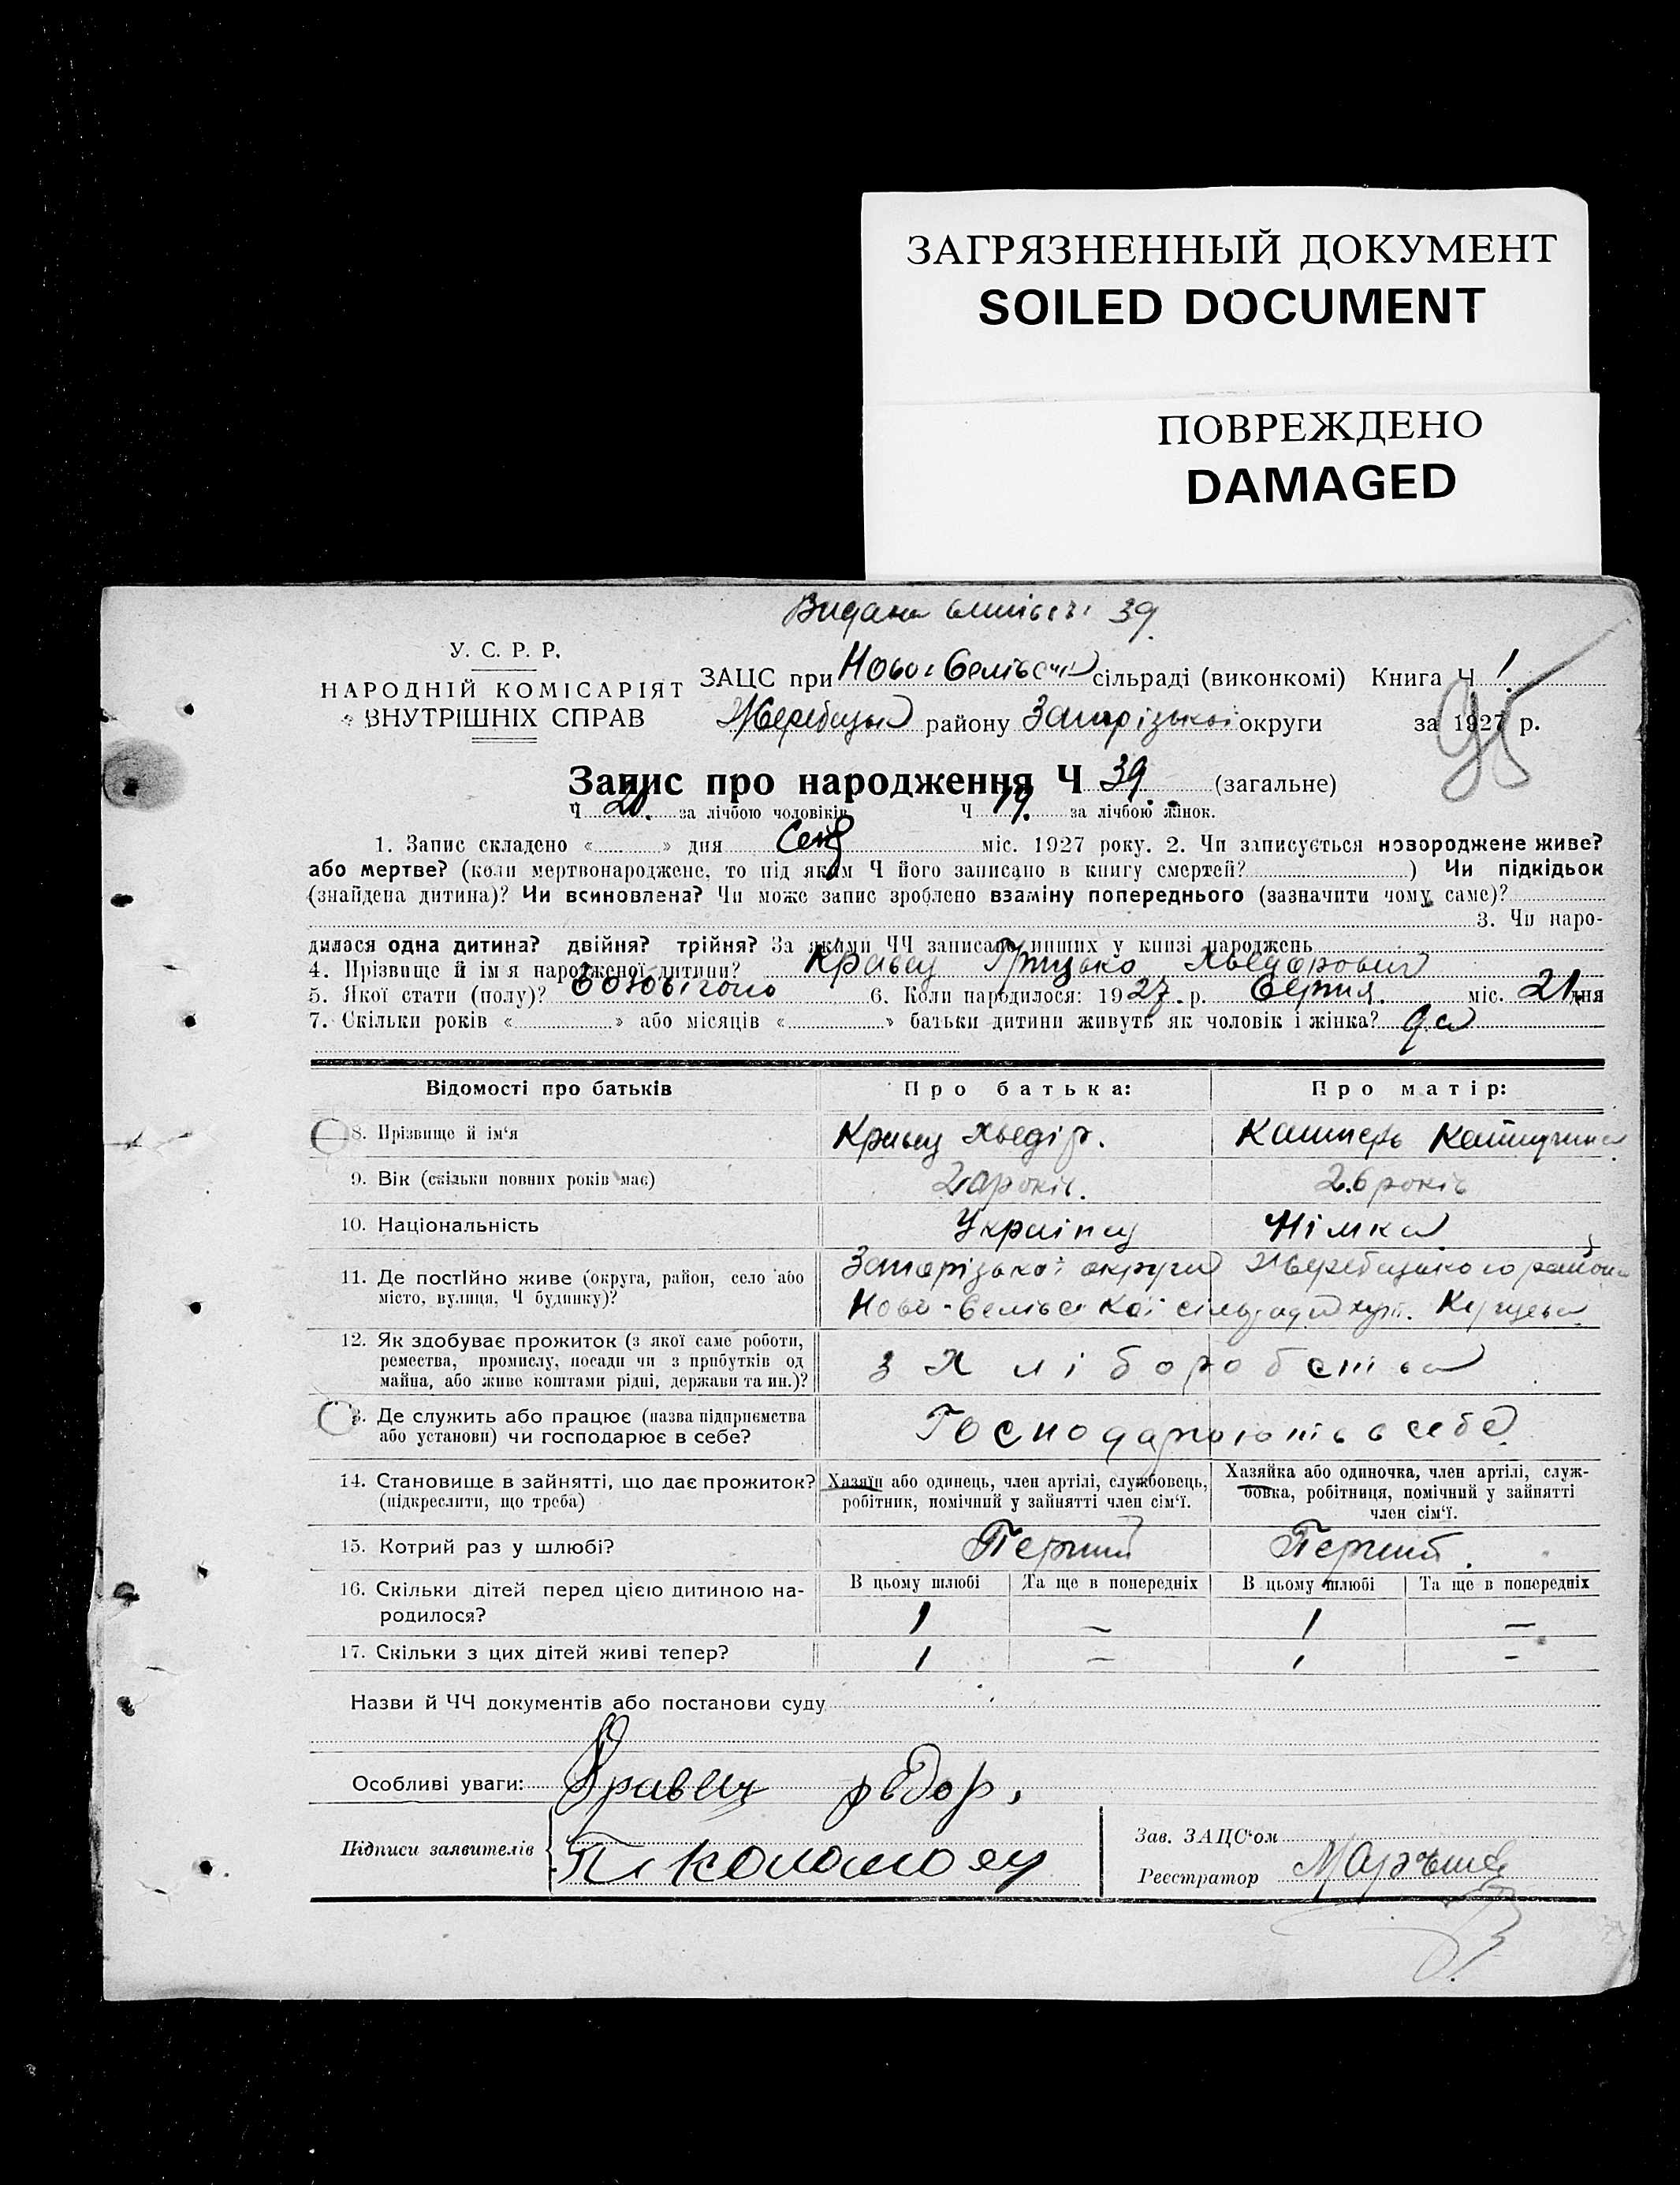 ЗАГРЯЗНЕННЫЙ ДОКУМЕНТ
SOILED DOCUMENT
ПОВРЕЖДЕНО
DAMAGED
Видана 39
У. С. Р. Р.
НАРОДНІЙ КОМІСАРІЯТ
ВНУТРІШНІХ СПРАВ
ЗАЦС при сільраді (виконкомі) Книга Ч 1
району Запорізької округи за 1927 р.
95
Запис про народження Ч 39. (загальне)
Ч 20. за лічбою чоловіків Ч 19. за лічбою жінок.
1. Запис складено «» дня міс. 1927 року. 2. Чи записується новороджене живе?
або мертве? (коли мертвонароджене, то під яким Ч його записано в книгу смертей?) Чи підкідьок
(знайдена дитина)? Чи всиновлена? Чи може запис зроблено взаміну попереднього (зазначити чому саме)?
3. Чи наро-
дилася одна дитина? двійня? трійня? За якими ЧЧ записано инших у книзі народжень
4. Прізвище й ім'я народженої дитини? Кравец Грицько Хведорович
5. Якої стати (полу)? 6. Коли народилося: 1927. р. Серпня. міс. 21 дня
7. Скільки років «» або місяців «» батьки дитини живуть як чоловік і жінка? да
Відомості про батьків Про батька: Про матір:
8. Прізвище й ім'я Кравец Хведір.
9. Вік (скільки повних років має) років. 26 років
10. Національність Українец Німка
11. Де постійно живе (округа, район, село або
місто, вулиця, Ч будинку)? Запорізької округи Жеребецького району
Ново- сільради хут.
12. Як здобуває прожиток (з якої саме роботи,
ремества, промислу, посади чи з прибутків од
майна, або живе коштами рідні, держави та ин.)? з Хліборобства
13. Де служить або працює (назва підприємства
або установи) чи господарює в себе? Господарюють в себе
14. Становище в зайнятті, що дає прожиток?
(підкреслити, що треба)
Хазяїн або одинець, член артілі, службовець,
робітник, помічний у зайнятті член сім'ї.
Хазяйка або одиночка, член артілі, служ-
бовка, робітниця, помічний у зайнятті
член сім'ї.
15. Котрий раз у шлюбі? Перший Перший.
16. Скільки дітей перед цією дитиною на-
родилося?
В цьому шлюбі Та ще в попередніх В цьому шлюбі Та ще в попередніх
1 – 1 –
17. Скільки з цих дітей живі тепер? 1 – 1 –
Назви й ЧЧ документів або постанови суду
Особливі уваги: Кравец
Підписи заявителів
Зав. ЗАЦС'ом
Реєстратор